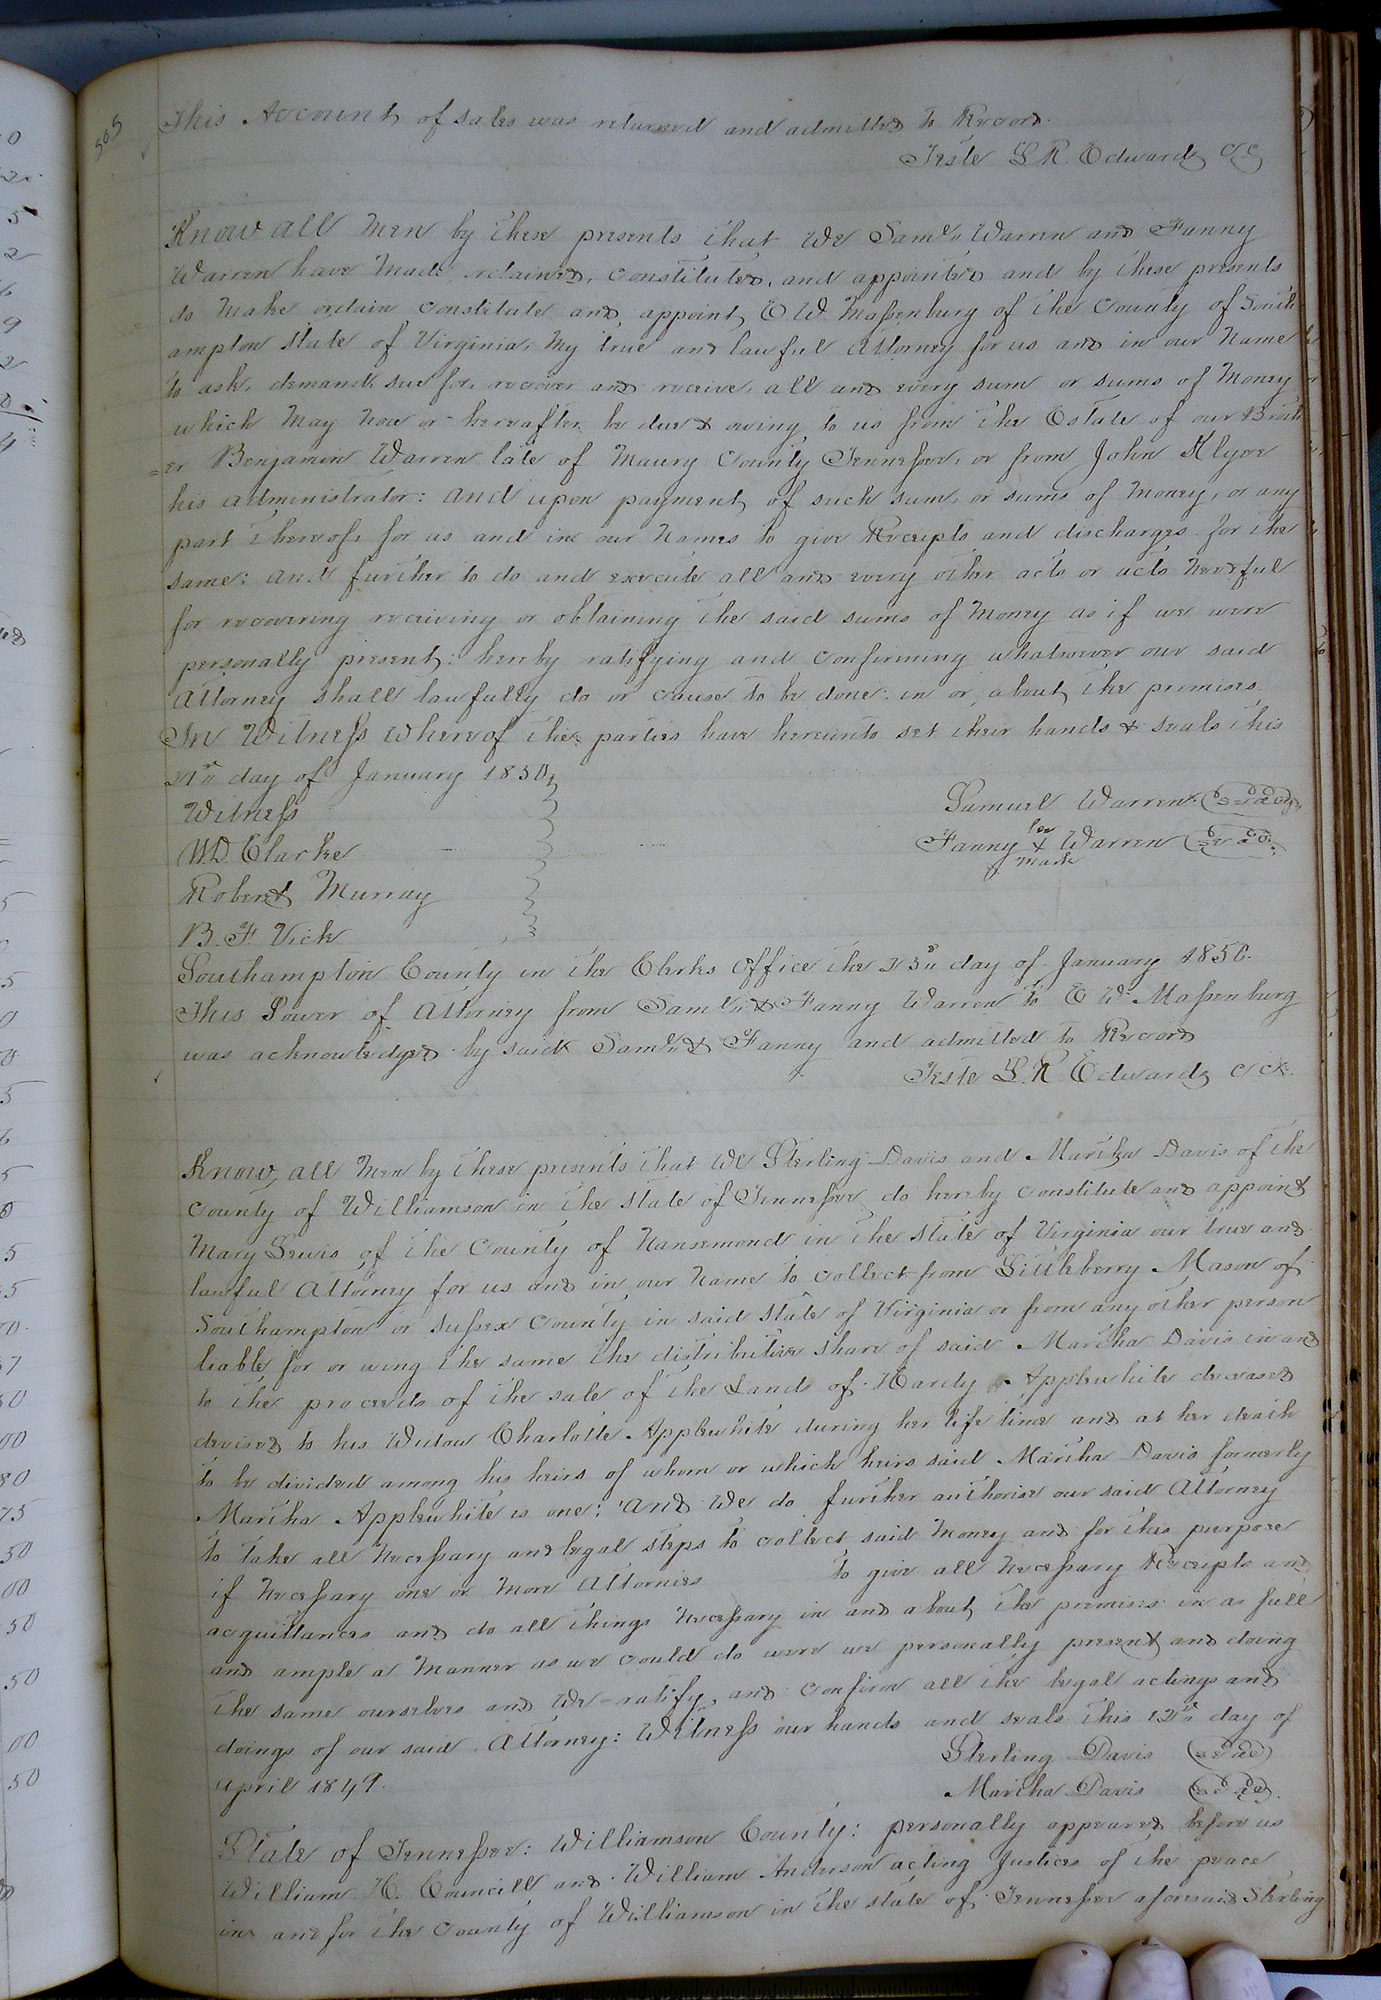 505
This Account of sales was returned and admitted to Record.
Teste L R. Edwards CC
Know all men by these presents that we Saml. Warren and Fanny
Warren have made retained, constituted, and appointed and by these presents
do make ordain constitute and appoint, E. W. Massenburg of the County of South
ampton State of Virginia, my true and lawful Attorney for us and in our name
to ask, demand, sue for, recover and receive, all and every sum or sums of money
which may now or hereafter be due & owing to us from the Estate of our Broth
=er Benjamin Warren late of Maury County Tennessee, or from John Klyce
his administrator: and upon payment, of such sum, or sums of money, or any
part thereof, for us and in our names to give Receipts and discharges for the
same: and further to do and execute all and every other acts or acts needful
for recovering receiving or obtaining the said sums of money as if we were
personally present: hereby ratifying and confirming whatsoever our said
Attorney shall lawfully do or cause to be done in or about the premises.
In Witness whereof the parties have hereunto set their hands & seals this
day of January 1850,
Witness
Samuel Warren (Seal)
W.D. Clarke
Fanny her X mark Warren (Seal)
Robert Murray
B. F. Vick
Southampton County in the Clerks Office the 23d day of January 1850.
This Power of Attorney from Saml. & Fanny Warren to E W. Massenburg
was acknowledged by said Saml. & Fanny and admitted to Record
Teste L. R Edwards C Ck.
Know, all men by these presents that we Sterling Davis and Martha Davis of the
County of Williamson in the State of Tennessee do hereby constitute and appoint
Mary Lewis of the County of Nansemond in the State of Virginia our true and
lawful Attorney for us and in our name to collect from Littleberry Mason of
Southampton or Sussex County in said State of Virginia or from any other person
liable for or wing the same the distributive share of said Martha Davis in and
to the proceeds of the sale of the Lands of Hardy Applewhite deceased
devised to his Widow Charlotte Applewhite during her life time and at her death
to be divided among his heirs of whom or which heirs said Martha Davis formerly
Martha Applewhite is one: And we do further authorise our said Attorney
to take all necessary and legal steps to collect said money and for this purpose
if necessary one or more Attornies to give all necessary Receipts and
acquittances and do all things necessary in and about the premises in as full
and ample a manner as we could do were we personally present and doing
the same ourselves and we ratify, and confirm all the legal actings and
doings of our said Attorney: Witness our hands and seals this 12th day of
April 1849.
Sterling Davis (Seal)
Martha Davis (Seal)
State of Tennessee: Williamson County: personally appeared before us
William H. Councill and William Anderson acting Justices of the peace
in and for the County of Williamson in the state of Tennessee aforesaid Sterling